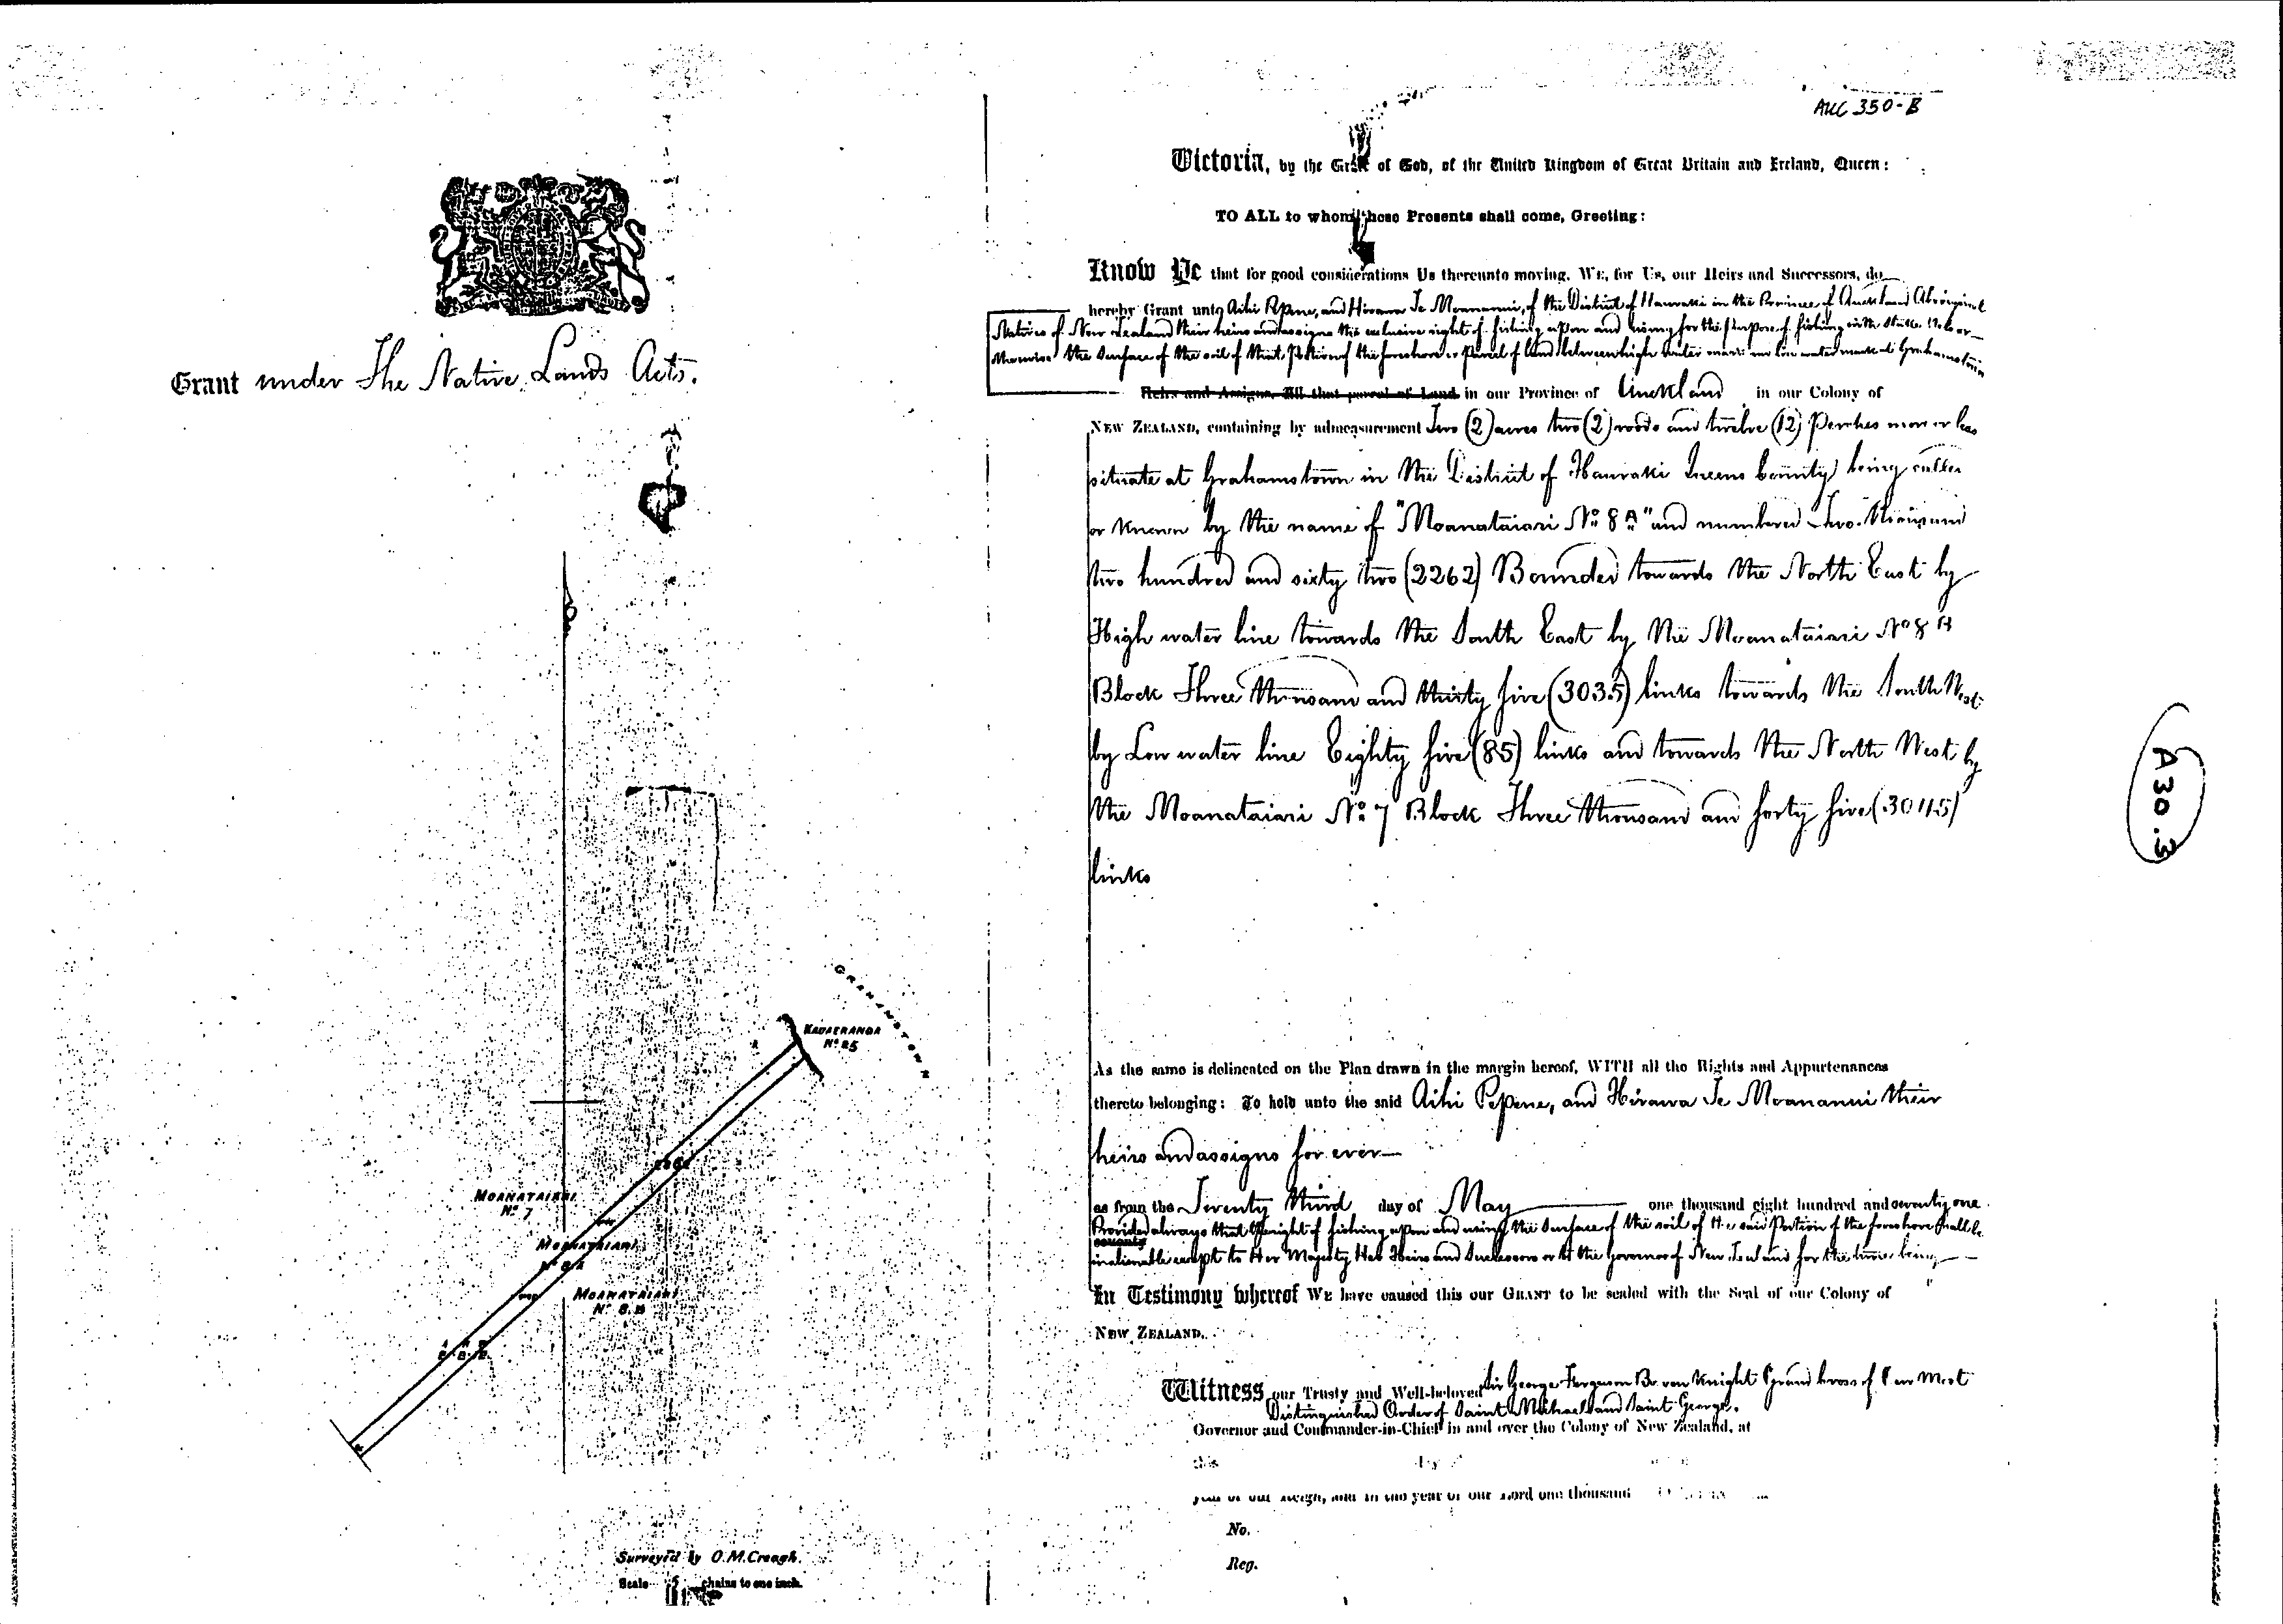 Grant under The Native Lands Acts.
GRAHAMSTOWN
KAUAERANGA
No 25
MOANATAIARI
No 7
MOANATAIARI
No 8 A
MOANATAIARI
No 8. B
Surveyed by O.M. Creagh.
Scale 5 chains to one inch.
AUC 350-B
Victoria, by the Grace of God, of the United Kingdom of Great Britain and Ireland, Queen:
TO ALL to whom these Presents shall come, Greeting:
Know Ye that for good considerations Us thereunto moving, WE, for Us, our Heirs and Successors, do
hereby Grant unto Aihi Pepene, and Hirawa Te Moananui, of the District of Hauraki in the Province of Auckland Aboriginal
Natives of New Zealand their heirs and assigns the exclusive right of fishing upon and using for the purpose of fishing with stakes Nets or
otherwise the surface of the soil of that portion of the foreshore or parcel of land between high water mark and low water mark at Grahamstown
Heirs and Assigns, All that parcel of Land in our Province of Auckland in our Colony of
NEW ZEALAND, containing by admeasurement Two (2) acres two (2) roods and twelve (12) Perches more or less
situate at Grahamstown in the District of Hauraki Queens County being called
or known by the name of "Moanataiari No 8 A" and numbered Two thousand
two hundred and sixty two (2262) Bounded towards the North East by
High water line towards the South East by the Moanataiari No 8 B
Block Three thousand and thirty five (3035) links towards the South West
by Low water line Eighty five (85) links and towards the North West by
the Moanataiari No 7 Block Three thousand and forty five (3045)
links
As the same is delineated on the Plan drawn in the margin hereof, WITH all the Rights and Appurtenances
thereto belonging: To hold unto the said Aihi Pepene, and Hirawa Te Moananui their
heirs and assigns for ever
as from the Twenty third day of May one thousand eight hundred and seventy one
Provided always that the right of fishing upon and using the surface of the soil of the said Portion of the foreshore shall be
inalienable except to Her Majesty Her Heirs and Successors or to the Governor of New Zealand for the time being
In Testimony whereof WE have caused this our GRANT to be sealed with the Seal of our Colony of
NEW ZEALAND.
Witness our Trusty and Well-beloved Sir George Ferguson Bowen Knight Grand Cross of Our Most
Distinguished Order of Saint Michael and Saint George,
Governor and Commander-in-Chief in and over the Colony of New Zealand, at
this day
year of our Reign, and in the year of our Lord one thousand
No.
Reg.
A30.3